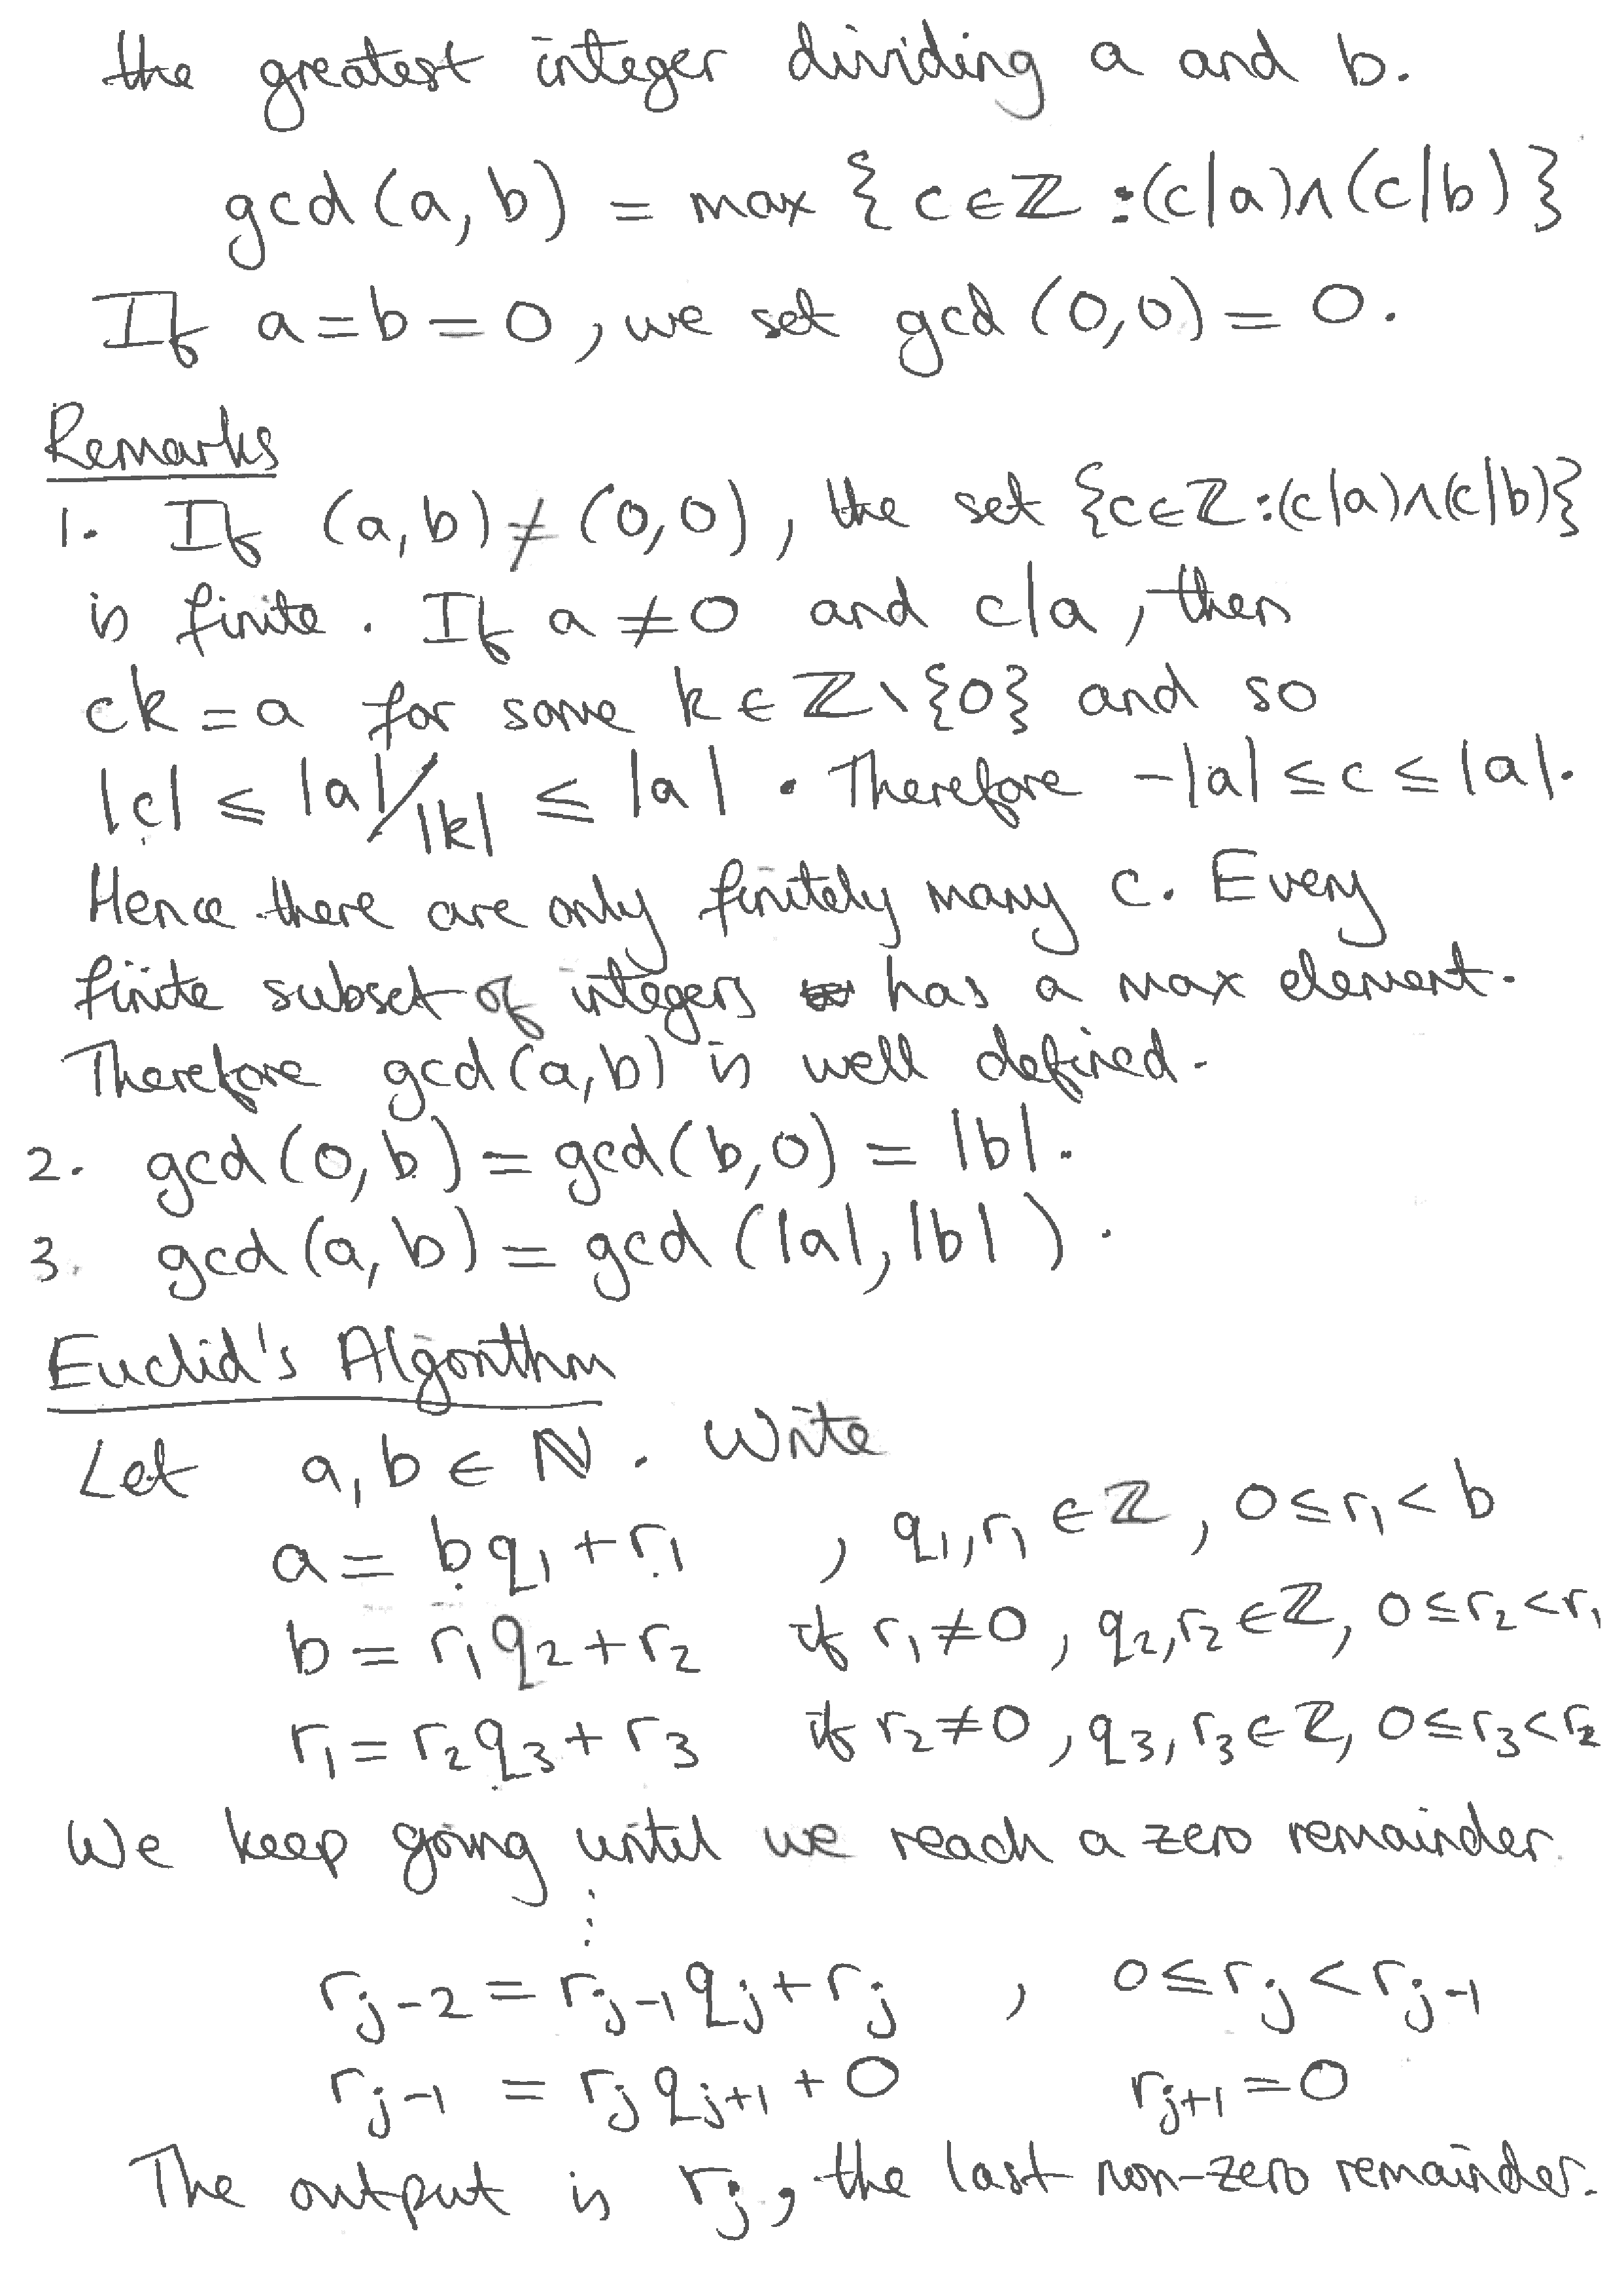 the greatest integer dividing a and b.
gcd(a, b) = max { c ∈ ℤ : (c|a) ∧ (c|b) }
If a = b = 0, we set gcd (0,0) = 0.
Remarks
1. If (a,b) ≠ (0,0), the set {c ∈ ℤ : (c|a) ∧ (c|b)}
is finite. If a ≠ 0 and c|a, then
ck = a for some k ∈ ℤ \ {0} and so
|c| ≤ |a|/|k| ≤ |a|. Therefore -|a| ≤ c ≤ |a|.
Hence there are only finitely many c. Every
finite subset of integers has a max element.
Therefore gcd(a,b) is well defined.
2. gcd(0,b) = gcd(b,0) = |b|.
3. gcd(a,b) = gcd(|a|,|b|).
Euclid's Algorithm
Let a, b ∈ ℕ. Write
a = bq₁ + r₁ , q₁, r₁ ∈ ℤ, 0 ≤ r₁ < b
b = r₁q₂ + r₂ if r₁ ≠ 0, q₂, r₂ ∈ ℤ, 0 ≤ r₂ < r₁
r₁ = r₂q₃ + r₃ if r₂ ≠ 0, q₃, r₃ ∈ ℤ, 0 ≤ r₃ < r₂
We keep going until we reach a zero remainder.
⋮
r_{j-2} = r_{j-1} q_j + r_j , 0 ≤ r_j < r_{j-1}
r_{j-1} = r_j q_{j+1} + 0 r_{j+1} = 0
The output is r_j, the last non-zero remainder.